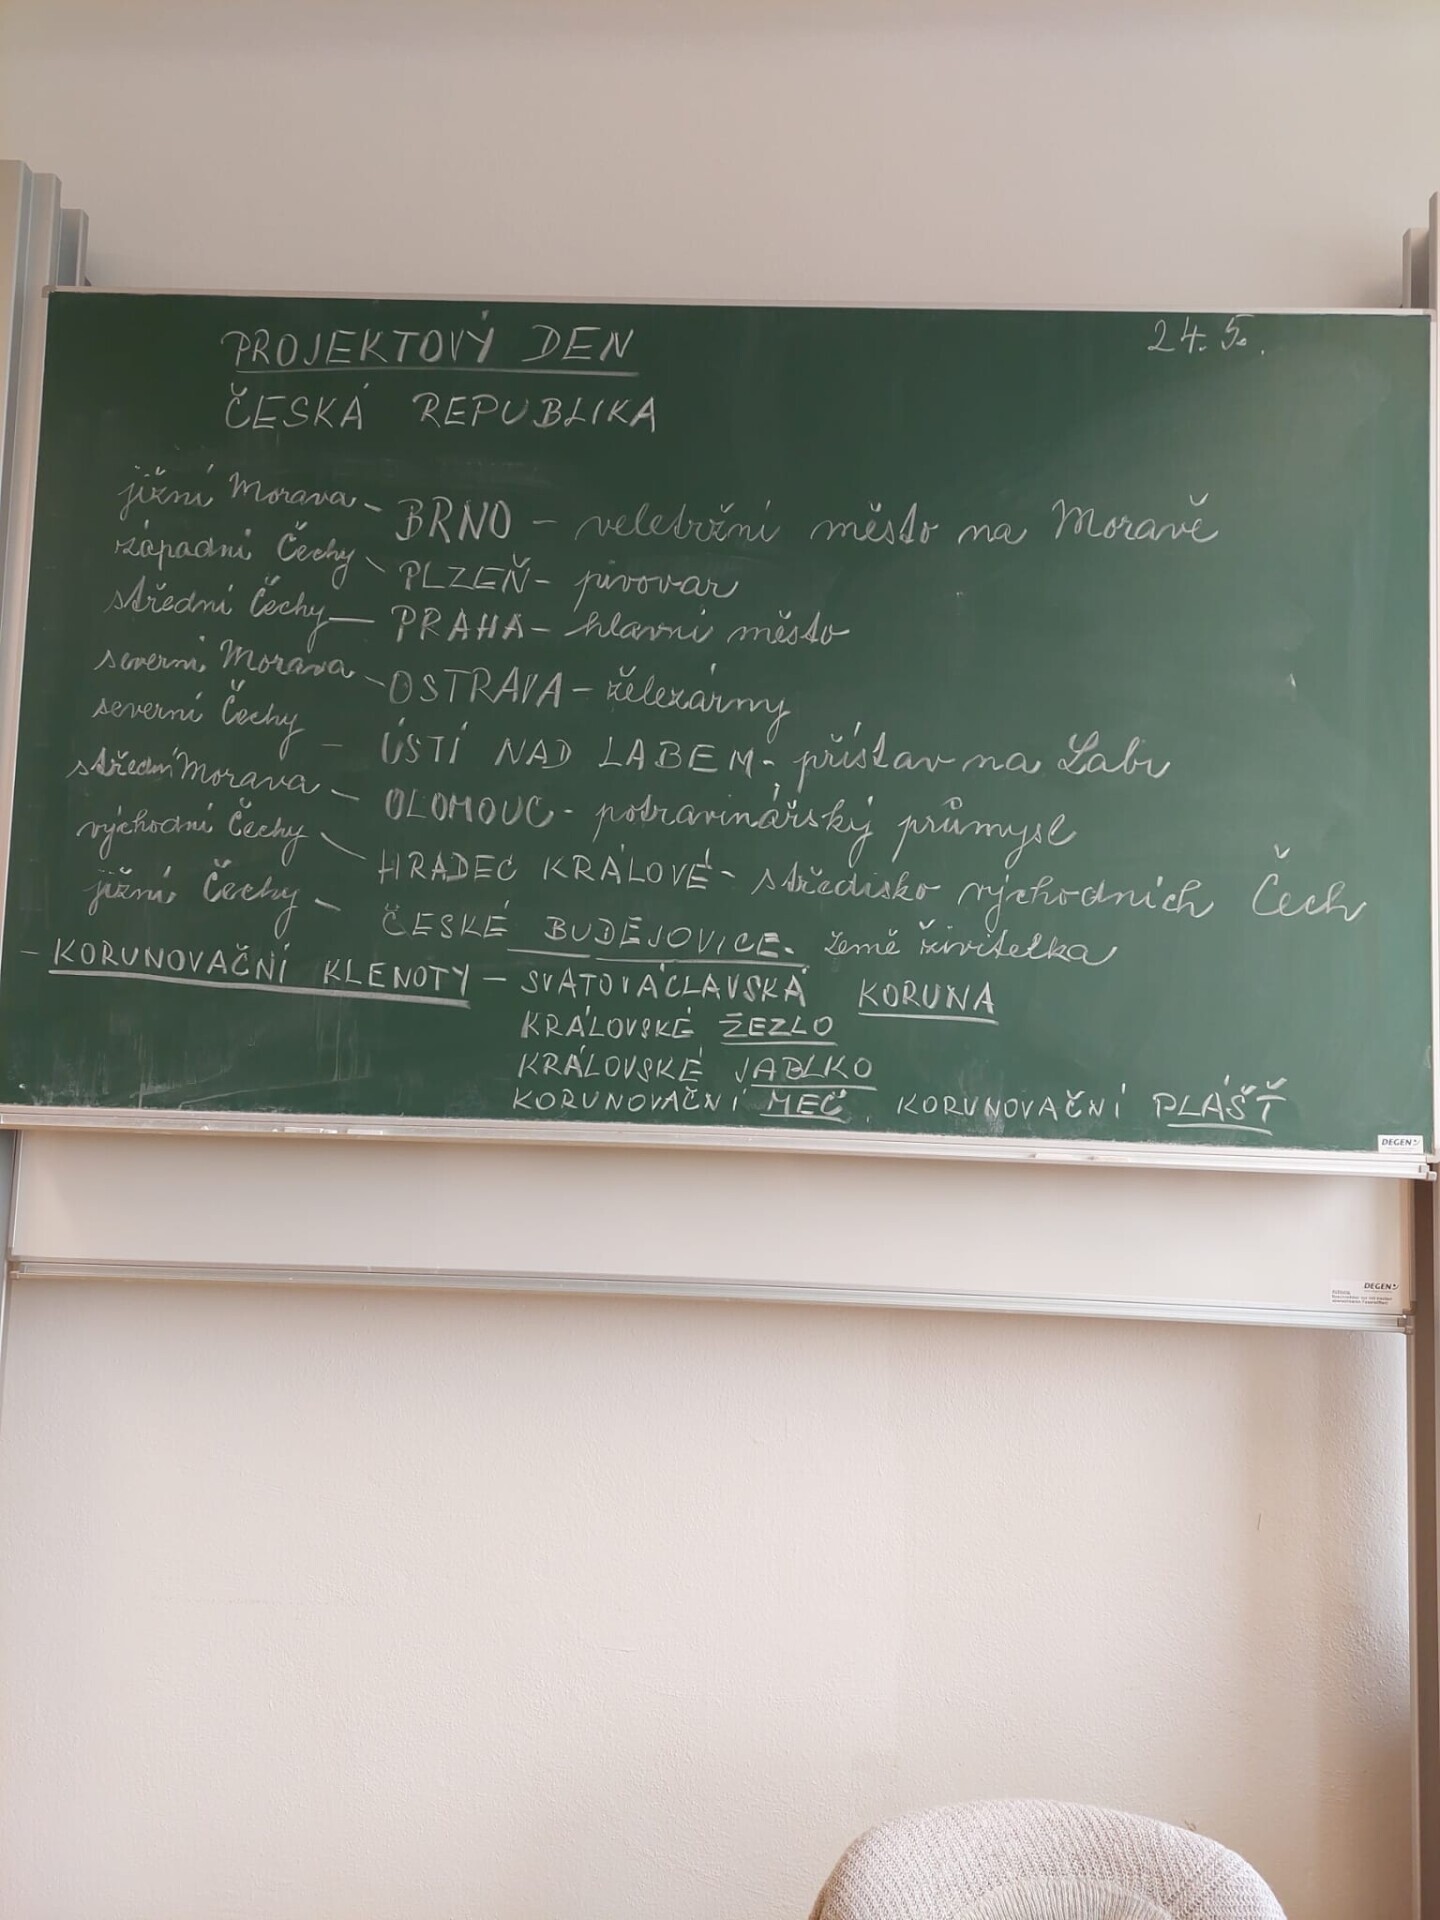 24. 5.
PROJEKTOVÝ DEN
ČESKÁ REPUBLIKA
jižní Morava - BRNO - veletržní město na Moravě
západní Čechy - PLZEŇ - pivovar
střední Čechy - PRAHA - hlavní město
severní Morava - OSTRAVA - železárny
severní Čechy - ÚSTÍ NAD LABEM - přístav na Labi
střední Morava - OLOMOUC - potravinářský průmysl
východní Čechy - HRADEC KRÁLOVÉ - středisko východních Čech
jižní Čechy - ČESKÉ BUDĚJOVICE - Země živitelka
- KORUNOVAČNÍ KLENOTY - SVATOVÁCLAVSKÁ KORUNA
KRÁLOVSKÉ ŽEZLO
KRÁLOVSKÉ JABLKO
KORUNOVAČNÍ MEČ, KORUNOVAČNÍ PLÁŠŤ
DEGEN
DEGEN